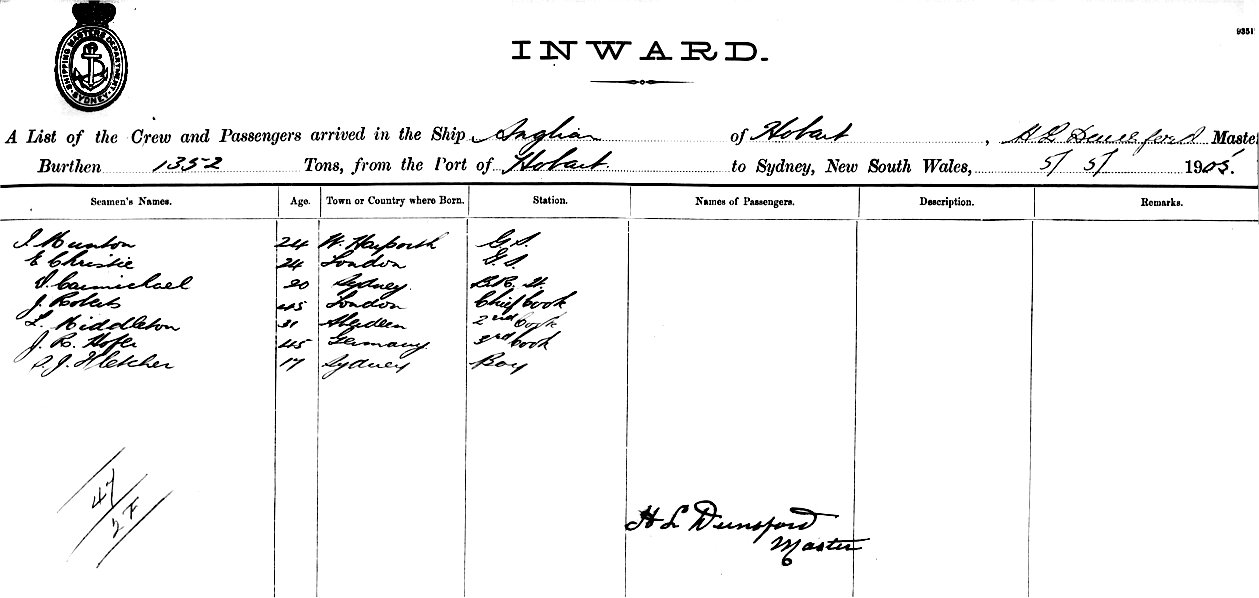 SHIPPING MASTERS DEPARTMENT SYDNEY
9351
INWARD.
A List of the Crew and Passengers arrived in the Ship Anglian of Hobart, H L Dunsford Maste
Burthen 1352 Tons, from the Port of Hobart to Sydney, New South Wales, 5/ 5/ 1905.
Seamen's Names. Age. Town or Country where Born. Station. Names of Passengers. Description. Remarks.
Munton 24 W. G.S.
E Christie 24 London G.S.
Carmichael 20 Sydney B.R. St.
J. Roberts 45 London Chief Cook
L. Middleton 31 Aberdeen 2nd Cook
J. R. Hofer 45 Germany 3rd Cook
J. Fletcher 17 Sydney Boy
47
2F
H L Dunsford
Master